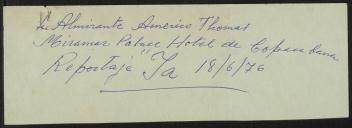 Almirante Américo Thomaz
Miramar Palace Hotel de Copacabana
Reportaje "Ya 18/6/76